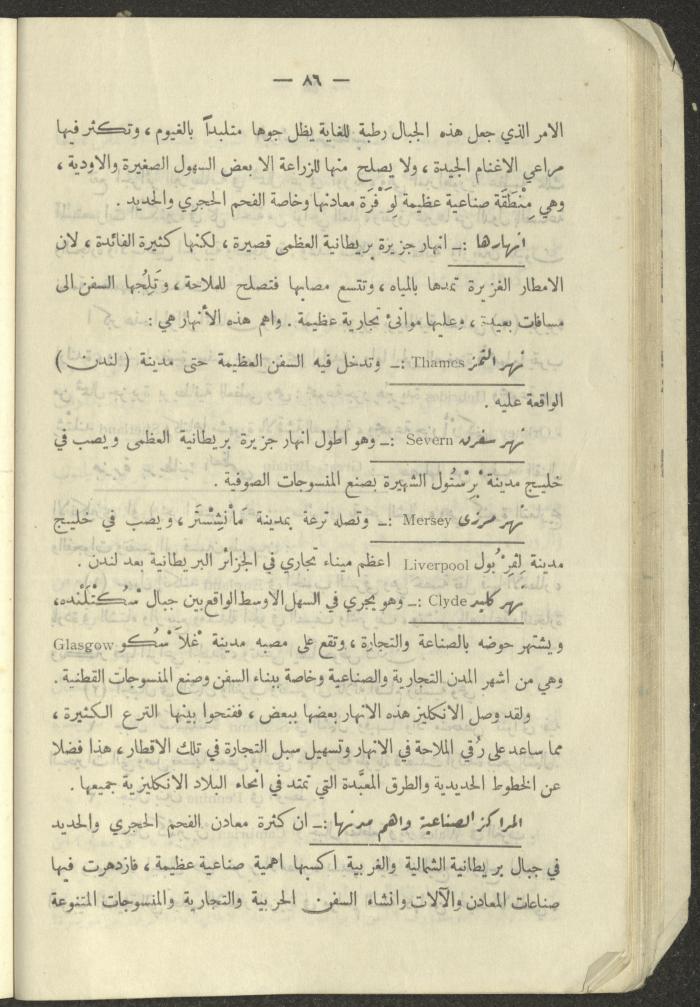 — ٨٦ —
الامر الذي جعل هذه الجبال رطبة للغاية يظل جوها متلبداً بالغيوم ، وتكثر فيها
مراعي الاغنام الجيدة ، ولا يصلح منها للزراعة الا بعض السهول الصغيرة والاودية ،
وهي مِنْطَقَة صناعية عظيمة لِوَفْرَة معادنها وخاصة الفحم الحجري والحديد .
انهارها :ـ انهار جزيرة بريطانية العظمى قصيرة ، لكنها كثيرة الفائدة ، لان
الامطار الغزيرة تمدها بالمياه ، وتتسع مصابها فتصلح للملاحة ، وتَلِجُها السفن الى
مسافات بعيدة ، وعليها موانئ تجارية عظيمة . واهم هذه الأنهار هي :
نهر التمز Thames :ـ وتدخل فيه السفن العظيمة حتى مدينة ( لندن )
الواقعة عليه .
نهر سفرن Severn :ـ وهو اطول انهار جزيرة بريطانية العظمى ويصب في
خليج مدينة بْرِسْتُول الشهيرة بصنع المنسوجات الصوفية .
نهر مرزى Mersey :ـ وتصله ترعة بمدينة مَانْشِسْتَر ، ويصب في خليج
مدينة لِفِرْبُول Liverpool اعظم ميناء تجاري في الجزائر البريطانية بعد لندن .
نهر كليد Clyde :ـ وهو يجري في السهل الاوسط الواقع بين جبال سْكُتْلَنْده،
ويشتهر حوضه بالصناعة والتجارة ، وتقع على مصبه مدينة غْلَاسْكُو Glasgow
وهي من اشهر المدن التجارية والصناعية وخاصة ببناء السفن وصنع المنسوجات القطنية .
ولقد وصل الانكليز هذه الانهار بعضها ببعض ، ففتحوا بينها الترع الكثيرة ،
مما ساعد على رُقي الملاحة في الانهار وتسهيل سبل التجارة في تلك الاقطار ، هذا فضلا
عن الخطوط الحديدية والطرق المعبَّدة التي تمتد في انحاء البلاد الانكليزية جميعها .
المراكز الصناعية واهم مدنها :ـ ان كثرة معادن الفحم الحجري والحديد
في جبال بريطانية الشمالية والغربية اكسبها اهمية صناعية عظيمة ، فازدهرت فيها
صناعات المعادن والآلات وانشاء السفن الحربية والتجارية والمنسوجات المتنوعة